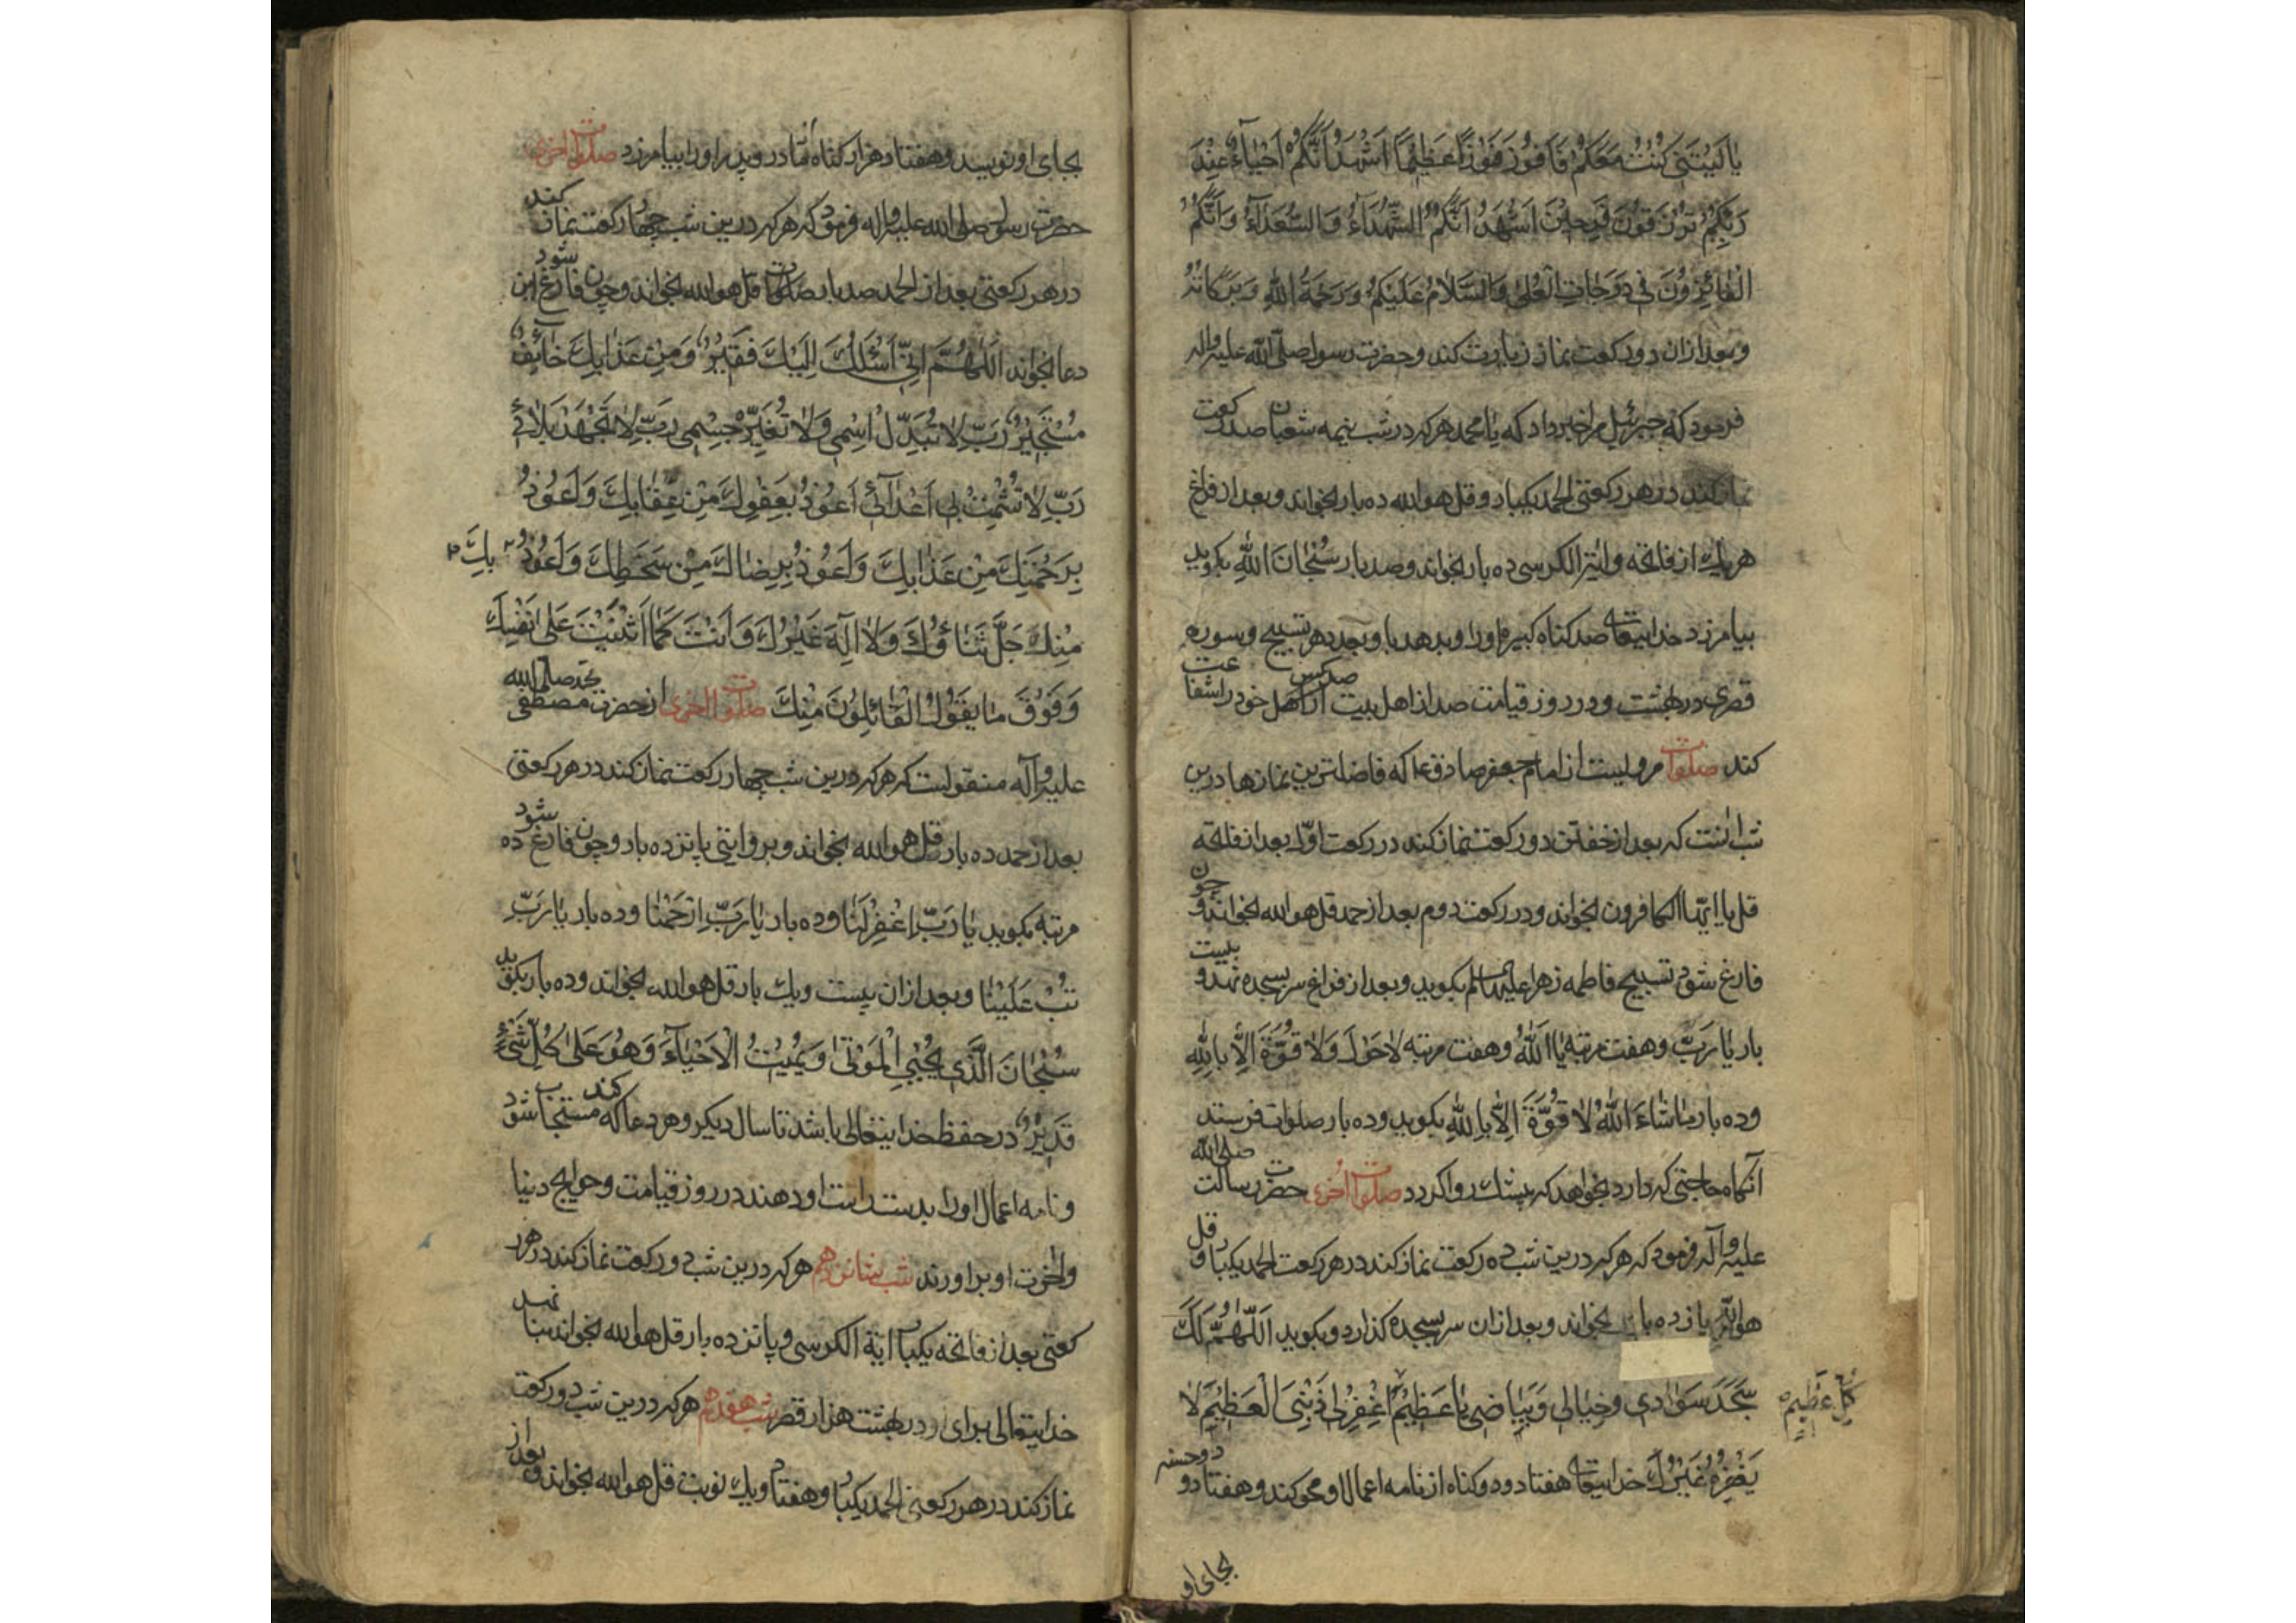 یَا لَیْتَنِی کُنْتُ مَعَکُمْ فَاَفُوزَ فَوْزًا عَظِیمًا اَشْهَدُ اَنَّکُمْ اَحْیَاءٌ عِنْدَ
رَبِّکُمْ تُرْزَقُونَ فَرِحِینَ اَشْهَدُ اَنَّکُمُ الشُّهَدَاءُ وَالسُّعَدَاءُ وَاَنَّکُمْ
الْفَائِزُونَ فِی دَرَجَاتِ الْعُلٰی وَالسَّلَامُ عَلَیْکُمْ وَرَحْمَةُ اللهِ وَبَرَکَاتُهُ
وبعد ازان دو رکعت نماز زیارت کند وحضرت رسول صلّی الله علیه واله
فرمود که جبرئیل مرا خبر داد که یا محمد هرکه در شب نیمه شعبان صد رکعت
نماز کند در هر رکعتی الحمد یکبار و قل هو الله ده بار بخواند وبعد از فراغ
هر یك از فاتحه وایة الکرسی ده بار بخواند وصد بار سُبْحَانَ اللهِ بکوید
بیامرزد خدایتعالی صد کناه کبیره اورا وبدهد باو بعدد هر تسبیح وسوره
قصری در بهشت ودر روز قیامت صد کس از اهل بیت خود را شفاعت
کند صلوات مرویست از امام جعفر صادق ع که فاضلترین نمازها درین
شب انست که بعد از خفتن دو رکعت نماز کند در رکعت اوّل بعد از فاتحه
قل یا ایّها الکافرون بخواند ودر رکعت دوم بعد از حمد قل هو الله بخواند وچون
فارغ شود تسبیح فاطمه زهرا علیها السلم بکوید وبعد از فراغ سر بسجده نهد وبیست
بار یَا رَبِّ وهفت مرتبه یَا اَللهُ وهفت مرتبه لَا حَوْلَ وَلَا قُوَّةَ اِلَّا بِاللهِ
وده بار مَا شَاءَ اللهُ لَا قُوَّةَ اِلَّا بِاللهِ بکوید وده بار صلوات فرستد
آنکاه حاجتی که دارد بخواهد که بیشك روا کردد صلوات اُخری حضرت رسالت صلی الله
علیه وآله فرمود که هرکه درین شب ده رکعت نماز کند در هر رکعت الحمد یکبار وقل
هو الله یازده بار بخواند وبعد ازان سر بسجده کذارد وبکوید اَللّٰهُمَّ لَكَ
سَجَدَ سَوَادِی وَخِیَالِی وَبَیَاضِی یَا عَظِیمُ اغْفِرْ لِی ذَنْبِیَ الْعَظِیمَ لَا
کُلِّ عَظِیمٍ
یَغْفِرُهُ غَیْرُكَ خدایتعالی هفتاد ودو کناه از نامه اعمال او محو کند وهفتاد ودو حسنه
بجای او
بجای او نویسد وهفتاد هزار کناه مادر وپدر اورا بیامرزد صلوات اخری
حضرت رسول صلی الله علیه واله فرمود که هرکه درین شب چهار رکعت نماز کند
در هر رکعتی بعد از الحمد صد بار قل هو الله بخواند وچون فارغ شود این
دعا بخواند اَللّٰهُمَّ اِنِّی اَسْئَلُكَ اِلَیْكَ فَقِیرٌ وَمِنْ عَذَابِكَ خَائِفٌ
مُسْتَجِیرٌ رَبِّ لَا تُبَدِّلْ اسْمِی وَلَا تُغَیِّرْ جِسْمِی رَبِّ لَا تَجْهَدْ بَلَائِی
رَبِّ لَا تُشْمِتْ بِی اَعْدَآئِی اَعُوذُ بِعَفْوِكَ مِنْ عِقَابِكَ وَاَعُوذُ
بِرَحْمَتِكَ مِنْ عَذَابِكَ وَاَعُوذُ بِرِضَاكَ مِنْ سَخَطِكَ وَاَعُوذُ بِكَ
مِنْكَ جَلَّ ثَنَاؤُكَ وَلَا اِلٰهَ غَیْرُكَ وَاَنْتَ کَمَا اَثْنَیْتَ عَلٰی نَفْسِكَ
وَفَوْقَ مَا یَقُولُ الْقَائِلُونَ مِنْكَ صلوات اخری از حضرت محمد مصطفی صلی الله
علیه وآله منقولست که هرکه درین شب چهار رکعت نماز کند در هر رکعتی
بعد از حمد ده بار قل هو الله بخواند وبروایتی پانزده بار وچون فارغ شود ده
مرتبه بکوید یَا رَبِّ اغْفِرْ لَنَا وده بار یَا رَبِّ ارْحَمْنَا وده بار یَا رَبِّ
تُبْ عَلَیْنَا وبعد ازان بیست ویك بار قل هو الله بخواند وده بار بکوید
سُبْحَانَ الَّذِی یُحْیِی الْمَوْتٰی وَیُمِیتُ الْاَحْیَآءَ وَهُوَ عَلٰی کُلِّ شَیْءٍ
قَدِیرٌ در حفظ خدایتعالی باشد تا سال دیکر وهر دعا که کند مستجاب شود
ونامه اعمال اورا بدست راست او دهند در روز قیامت وحوایج دنیا
واخرت او براورند شب شانزدهم هرکه درین شب دو رکعت نماز کند در هر
رکعتی بعد از فاتحه یکبار آیة الکرسی وپانزده بار قل هو الله بخواند بنا نهد
خدایتعالی برای او در بهشت هزار قصر شب هفدهم هرکه درین شب دو رکعت
نماز کند در هر رکعتی الحمد یکبار وهفتاد ویك نوبت قل هو الله بخواند وبعد از